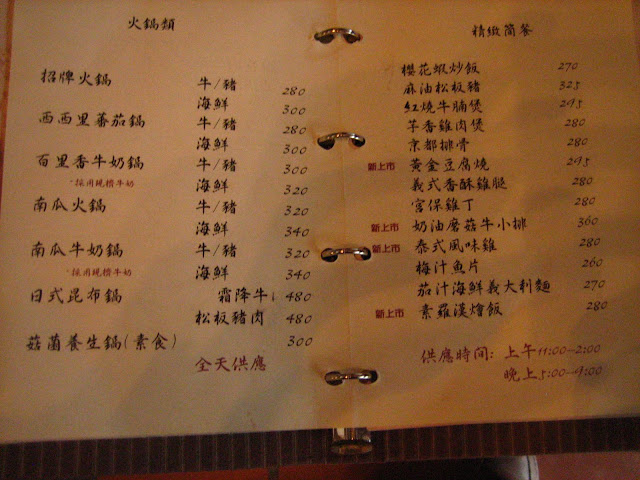 火鍋類
招牌火鍋 牛/豬 280
海鮮 300
西西里蕃茄鍋 牛/豬 280
海鮮 300
百里香牛奶鍋 牛/豬 300
*採用現擠牛奶 海鮮 320
南瓜火鍋 牛/豬 320
海鮮 340
南瓜牛奶鍋 牛/豬 320
*採用現擠牛奶 海鮮 340
日式昆布鍋 霜降牛 480
松板豬肉 480
菇菌養生鍋(素食) 300
全天供應
精緻簡餐
櫻花蝦炒飯 270
麻油松板豬 325
紅燒牛腩煲 295
芋香雞肉煲 280
京都排骨 280
新上市 黃金豆腐燒 295
義式香酥雞腿 280
宮保雞丁 280
新上市 奶油磨菇牛小排 360
新上市 泰式風味雞 280
梅汁魚片 260
茄汁海鮮義大利麵 270
新上市 素羅漢燴飯 280
供應時間: 上午11:00-2:00
晚上5:00-9:00